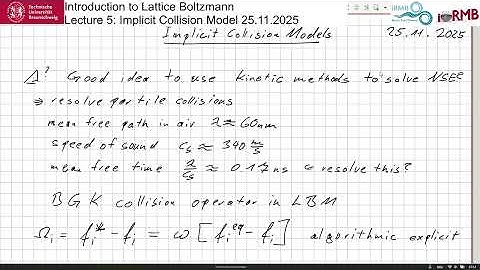 Technische
Universität
Braunschweig
Introduction to Lattice Boltzmann
Lecture 5: Implicit Collision Model 25.11.2025
iRMB
iRMB
Implicit Collision Models 25.11.2025
? Good idea to use kinetic methods to solve NSE
⇒ resolve partile collisions
mean free path in air λ ≈ 60nm
speed of sound c_s ≈ 340 m/s
mean free time λ/c_s ≈ 0.17 ns resolve this?
BGK collision operator in LBM
Ω_i = f_i^* - f_i = ω [f_i^eq - f_i] algorithmic explicit